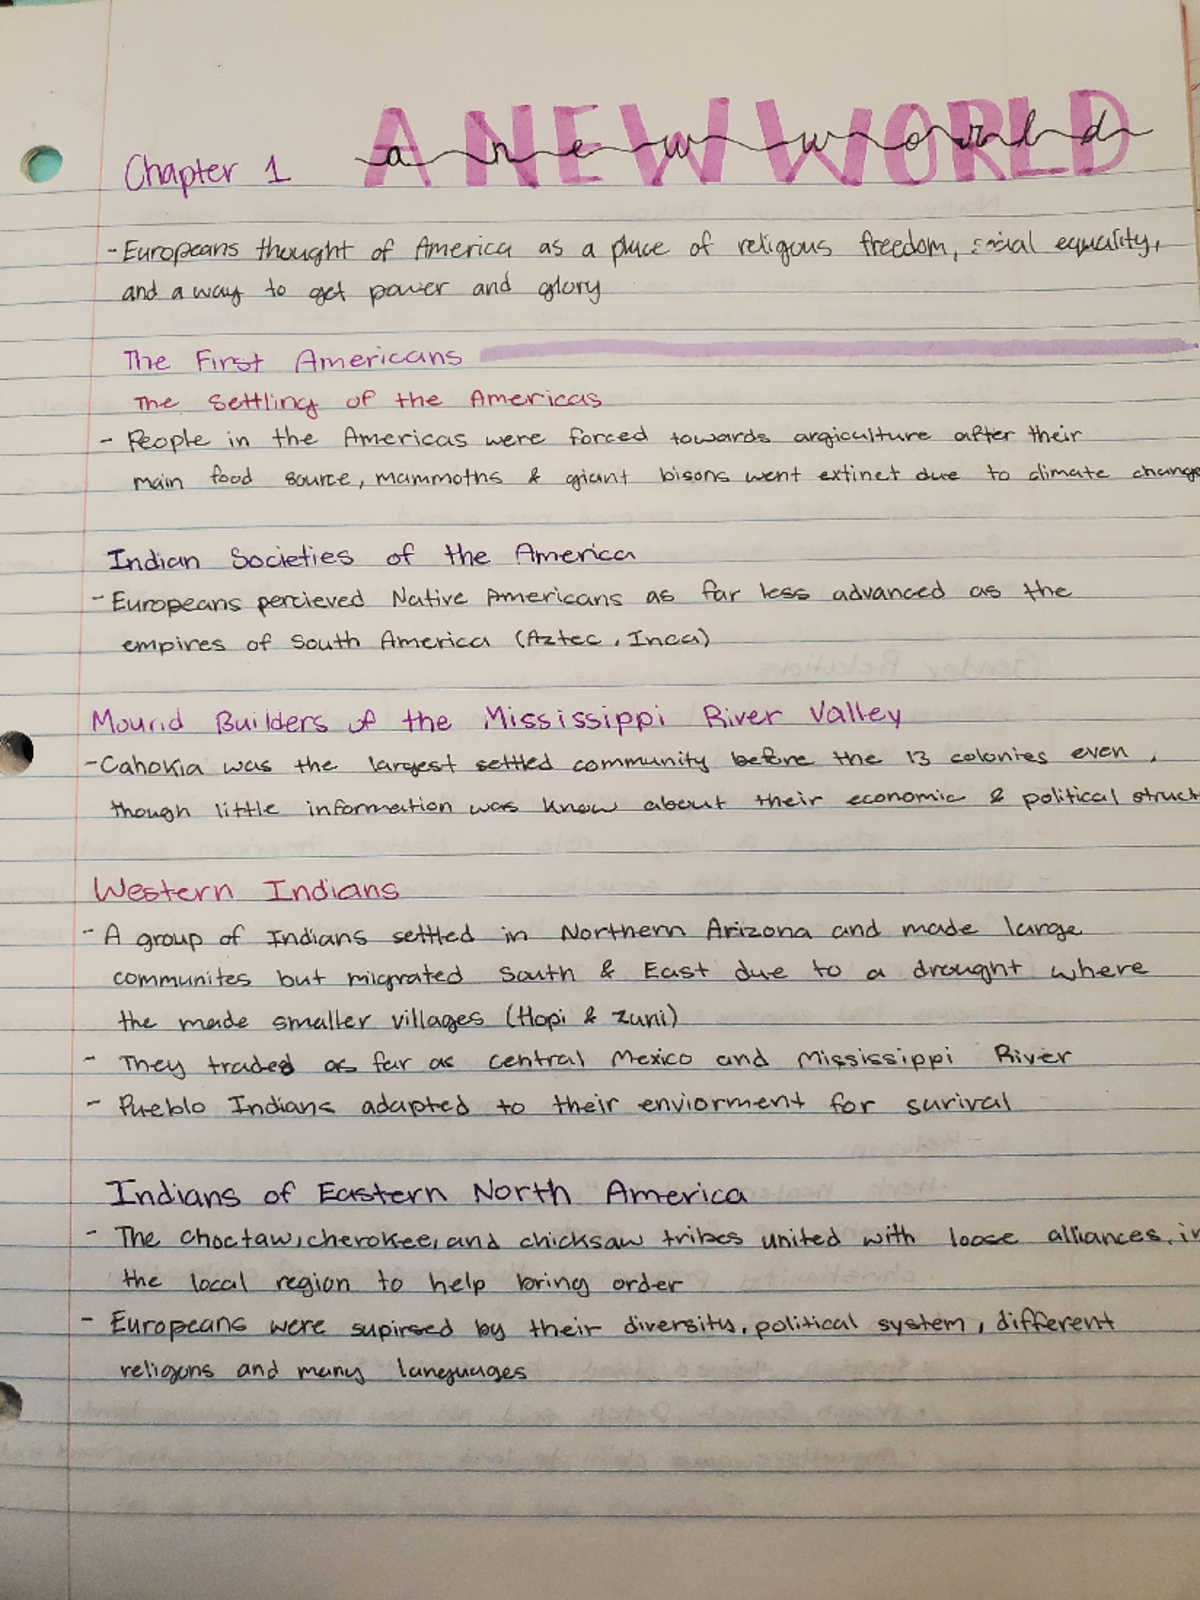 Chapter 1 A NEW WORLD
a new world
-Europeans thought of America as a place of religous freedom, social equality,
and a way to get power and glory
The First Americans
The Settling of the Americas
- People in the Americas were forced towards argiculture after their
main food source, mammoths & giant bisons went extinct due to climate change
Indian Societies of the America
- Europeans percieved Native Americans as far less advanced as the
empires of South America (Aztec, Inca)
Mound Builders of the Mississippi River Valley
- Cahokia was the largest settled community before the 13 colonies even,
though little information was know about their economic & political struct
Western Indians
- A group of Indians settled in Northern Arizona and made large
communites but migrated South & East due to a drought where
the made smaller villages (Hopi & Zuni)
- They traded as far as Central Mexico and Mississippi River
- Pueblo Indians adapted to their enviorment for surival
Indians of Eastern North America
- The Choctaw, cherokee, and chicksaw tribes united with loose alliances, in
the local region to help bring order
- Europeans were supirsed by their diversity, political system, different
religons and many languages